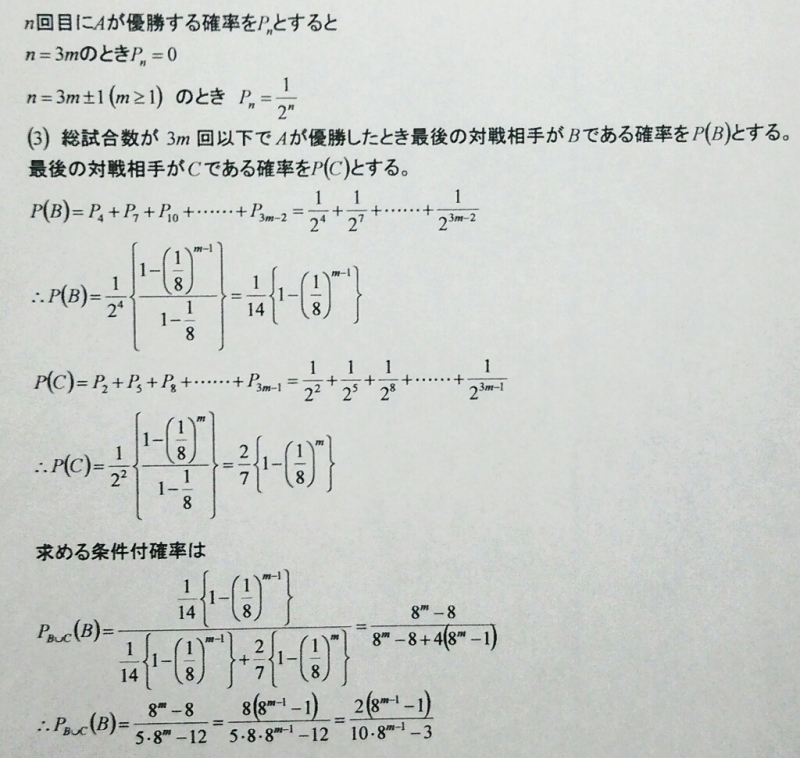 n回目にAが優勝する確率をPₙとすると
n = 3mのときPₙ = 0
n = 3m±1 (m ≥ 1) のとき Pₙ = 1/2ⁿ
(3) 総試合数が 3m 回以下でAが優勝したとき最後の対戦相手がBである確率をP(B)とする。
最後の対戦相手がCである確率をP(C)とする。
P(B) = P₄ + P₇ + P₁₀ + …… + P_{3m−2} = 1/2⁴ + 1/2⁷ + …… + 1/2^{3m−2}
∴ P(B) = 1/2⁴ { (1−(1/8)^{m−1}) / (1−1/8) } = 1/14 {1−(1/8)^{m−1}}
P(C) = P₂ + P₅ + P₈ + …… + P_{3m−1} = 1/2² + 1/2⁵ + 1/2⁸ + …… + 1/2^{3m−1}
∴ P(C) = 1/2² { (1−(1/8)^m) / (1−1/8) } = 2/7 {1−(1/8)^m}
求める条件付確率は
P_{B∪C}(B) = (1/14 {1−(1/8)^{m−1}}) / (1/14 {1−(1/8)^{m−1}} + 2/7 {1−(1/8)^m}) = (8^m − 8) / (8^m − 8 + 4(8^m − 1))
∴ P_{B∪C}(B) = (8^m − 8) / (5·8^m − 12) = 8(8^{m−1} − 1) / (5·8·8^{m−1} − 12) = 2(8^{m−1} − 1) / (10·8^{m−1} − 3)